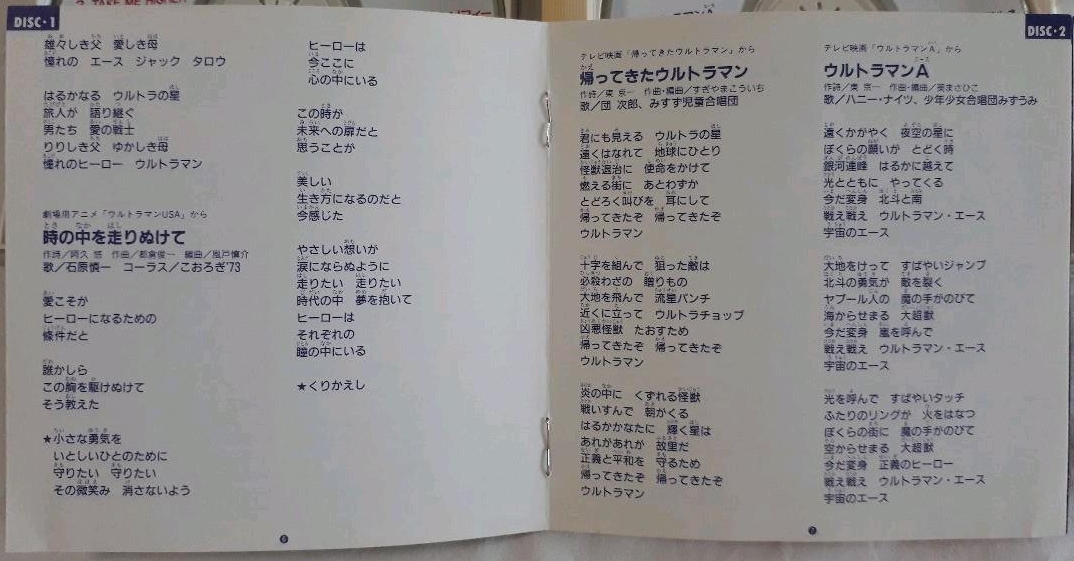 DISC・1
2. TAKE ME HIGHER
雄々しき父　愛しき母
憧れの　エース　ジャック　タロウ
はるかなる　ウルトラの星
旅人が　語り継ぐ
男たち　愛の戦士
りりしき父　ゆかしき母
憧れのヒーロー　ウルトラマン
劇場用アニメ「ウルトラマンUSA」から
時の中を走りぬけて
作詩／阿久 悠　作曲／都倉俊一　編曲／風戸慎介
歌／石原慎一　コーラス／こおろぎ'73
愛こそか
ヒーローになるための
條件だと
誰かしら
この胸を駆けぬけて
そう教えた
★小さな勇気を
いとしいひとのために
守りたい　守りたい
その微笑み　消さないよう
ヒーローは
今ここに
心の中にいる
この時が
未来への扉だと
思うことが
美しい
生き方になるのだと
今感じた
やさしい想いが
涙にならぬように
走りたい　走りたい
時代の中　夢を抱いて
ヒーローは
それぞれの
瞳の中にいる
★くりかえし
6
DISC・2
テレビ映画「帰ってきたウルトラマン」から
帰ってきたウルトラマン
作詩／東 京一　作曲・編曲／すぎやまこういち
歌／団 次郎、みすず児童合唱団
君にも見える　ウルトラの星
遠くはなれて　地球にひとり
怪獣退治に　使命をかけて
燃える街に　あとわずか
とどろく叫びを　耳にして
帰ってきたぞ　帰ってきたぞ
ウルトラマン
十字を組んで　狙った敵は
必殺わざの　贈りもの
大地を飛んで　流星パンチ
近くに立って　ウルトラチョップ
凶悪怪獣　たおすため
帰ってきたぞ　帰ってきたぞ
ウルトラマン
炎の中に　くずれる怪獣
戦いすんで　朝がくる
はるかかなたに　輝く星は
あれがあれが　故里だ
正義と平和を　守るため
帰ってきたぞ　帰ってきたぞ
ウルトラマン
テレビ映画「ウルトラマンA」から
ウルトラマンA
作詩／東 京一　作曲・編曲／葵まさひこ
歌／ハニー・ナイツ、少年少女合唱団みずうみ
遠くかがやく　夜空の星に
ぼくらの願いが　とどく時
銀河連峰　はるかに越えて
光とともに　やってくる
今だ変身　北斗と南
戦え戦え　ウルトラマン・エース
宇宙のエース
大地をけって　すばやいジャンプ
北斗の勇気が　敵を裂く
ヤプール人の　魔の手がのびて
海からせまる　大超獣
今だ変身　嵐を呼んで
戦え戦え　ウルトラマン・エース
宇宙のエース
光を呼んで　すばやいタッチ
ふたりのリングが　火をはなつ
ぼくらの街に　魔の手がのびて
空からせまる　大超獣
今だ変身　正義のヒーロー
戦え戦え　ウルトラマン・エース
宇宙のエース
7